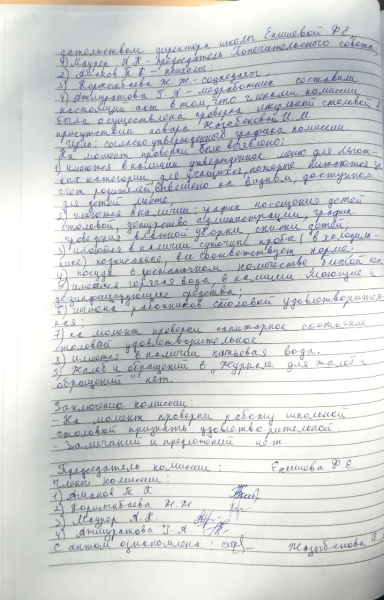 дательством директора школы Екишевой Ф.Е.
1) Маурер А.Я - председатель Попечительского совета,
2) Аманов Т.К - психолог;
3) Ж.Ж - соцпедагог;
4) Т.А - медработник составили
настоящий акт в том, что членами комиссии
была осуществлена проверка школьной столовой в
присутствии повара Жазыбековой И.М.
Цель: согласно утвержденного графика комиссии
На момент проверки было выявлено:
1) имеются в наличии утвержденное меню для льгот-
ной категории для учащихся, которые питаются за
счет родителей вывешено на видном, доступном
для детей месте,
2) имеются в наличии график посещения детей
столовой, дежурство администрации, график
проведения влажной уборки, списки детей,
3) имеются в наличии суточные пробы (в холодиль-
нике) подписанное, все соответствует норме.
4) посуда в достаточном количестве
5) имеются горячая вода в наличии моющие и
дезинфицирующие средства;
6) гигиена работников столовой удовлетворитель-
ная;
7) на момент проверки санитарное состояние
столовой удовлетворительное.
8) имеется в наличии питьевая вода.
9) Жалоб и обращений в "Журнале для жалоб и
обращений" нет.
Заключение комиссии:
- На момент проверки работу школьной
столовой признать удовлетворительной
- Замечаний и предложений нет.
Председатель комиссии: Екишева Ф.Е.
Члены комиссии:
1) Аманов Т.К
2) Ж.Ж
3) Маурер А.Я
4) Т.А
С актом ознакомлена: Жазыбекова И.